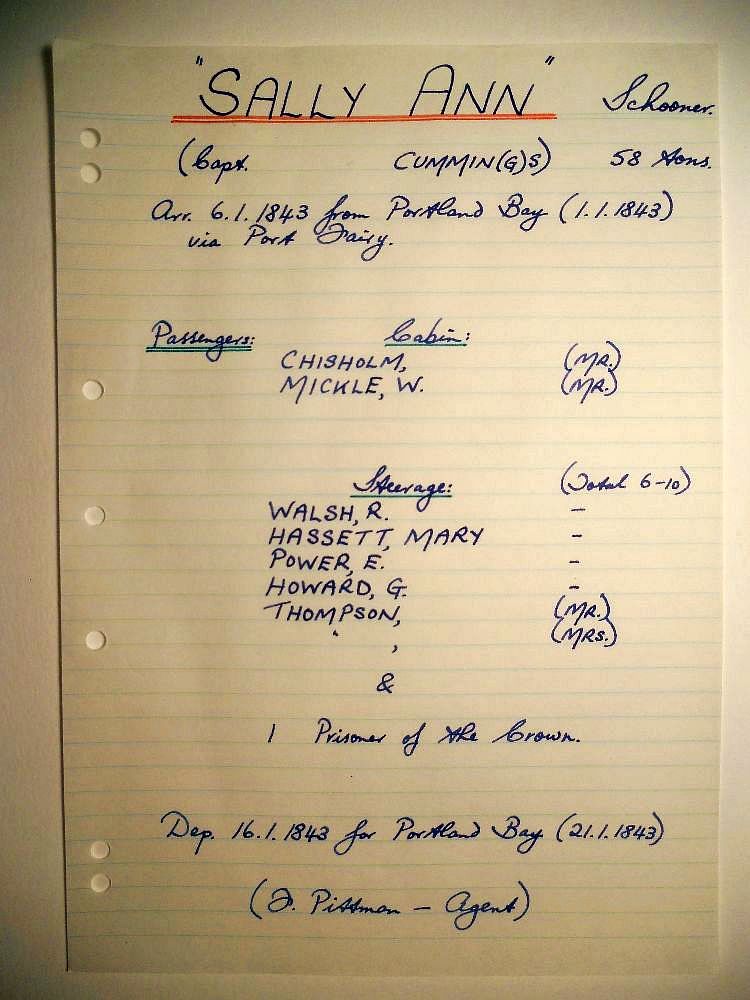 "SALLY ANN" Schooner.
(Capt. CUMMIN(G)S) 58 tons.
Arr. 6.1.1843 from Portland Bay (1.1.1843)
via Port Fairy.
Passengers: Cabin:
CHISHOLM, (MR.)
MICKLE, W. (MR.)
Steerage: (Total 6-10)
WALSH, R. -
HASSETT, MARY -
POWER, E. -
HOWARD, G. -
THOMPSON, (MR.)
" , (MRS.)
&
1 Prisoner of the Crown.
Dep. 16.1.1843 for Portland Bay (21.1.1843)
(J. Pittman - Agent)